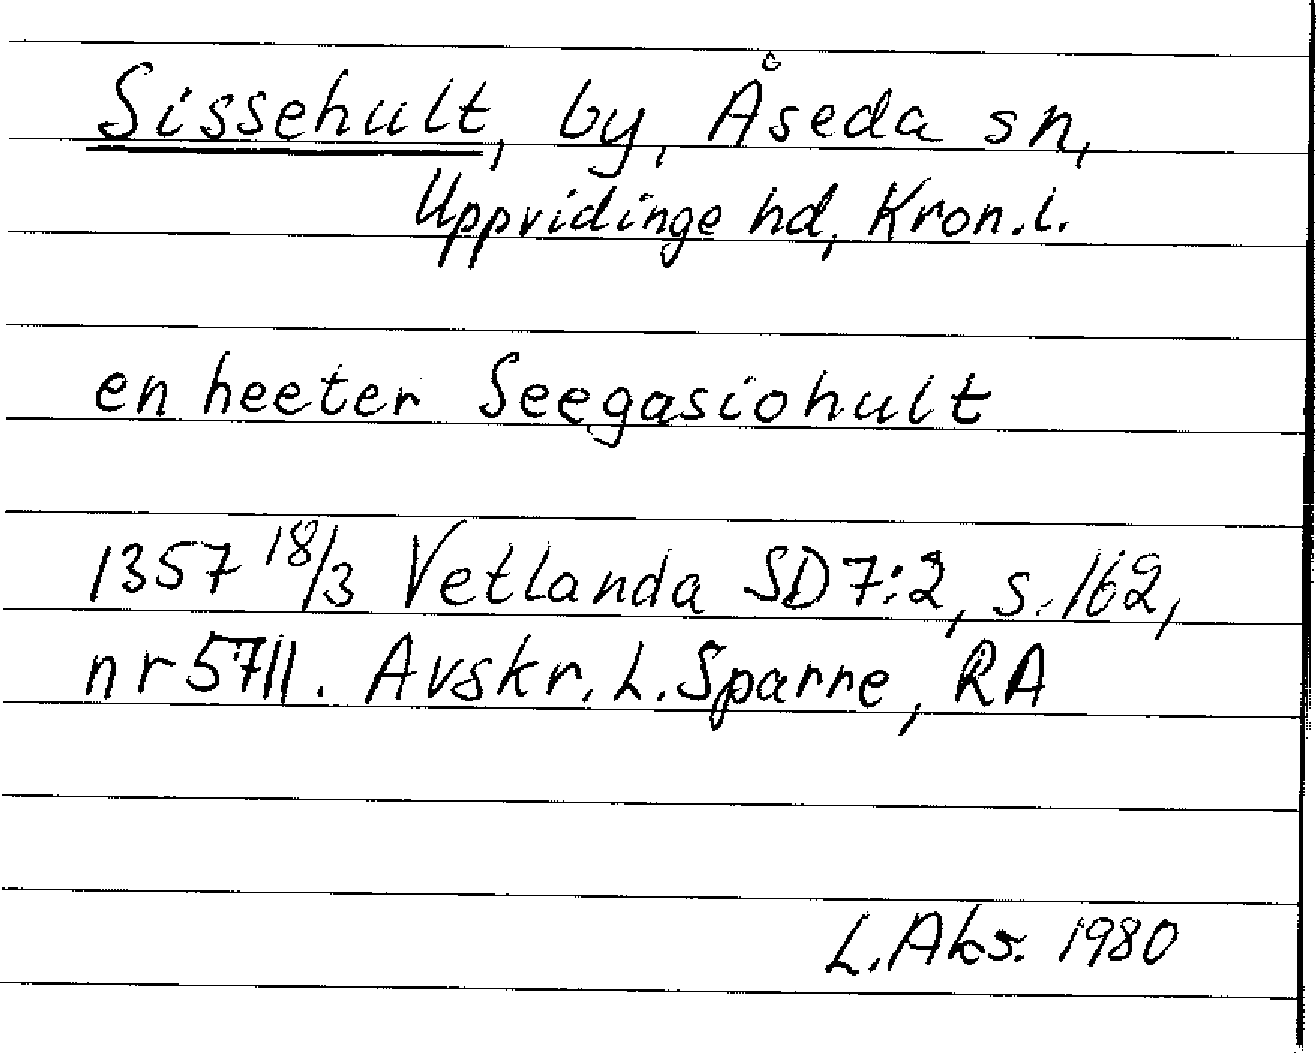 Sissehult, by, Åseda sn,
Uppvidinge hd, Kron.l.
en heeter Seegasiohult
1357 18/3 Vetlanda SD 7:2, s. 162,
nr 5711. Avskr. L. Sparre, RA
L. Aks. 1980